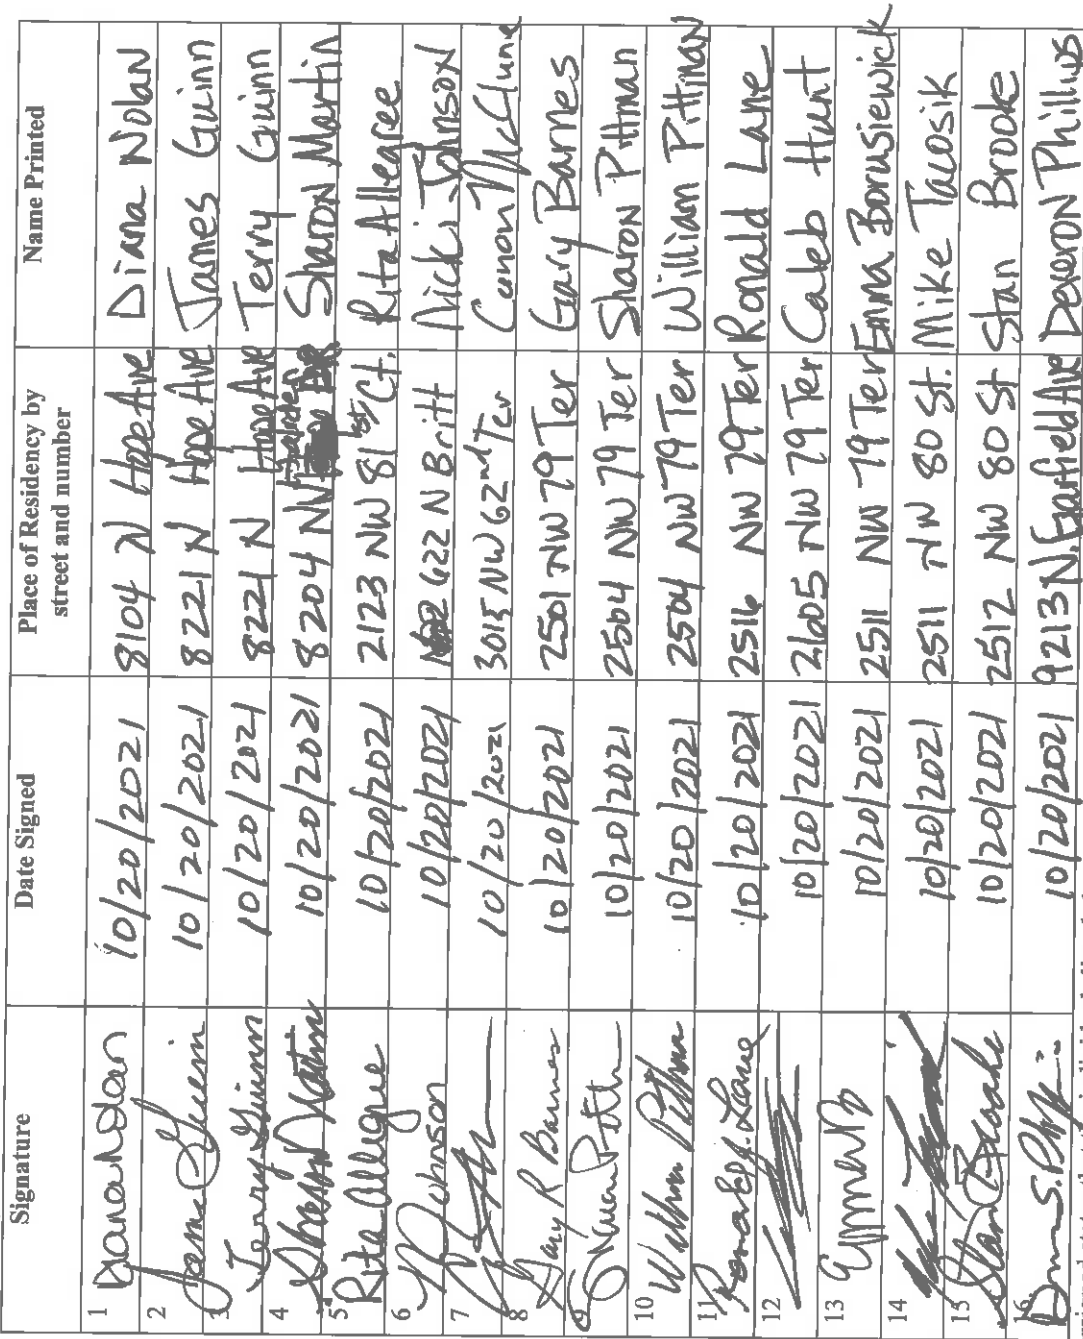 Signature Date Signed Place of Residency by street and number Name Printed
1 10/20/2021 8104 N Hope Ave Diana Nolan
2 10/20/2021 8221 N Hope Ave James Guinn
3 Terry Guinn 10/20/2021 8221 N Hope Ave Terry Guinn
4 Sharon Martin 10/20/2021 8204 N Sharon Martin
5 Rita Allegree 10/20/2021 2123 NW 81st Ct. Rita Allegree
6 N Johnson 10/20/2021 622 N Britt Nicki Johnson
7 10/20/2021 3015 NW 62nd Ter McClune
8 Gary R Barnes 10/20/2021 2501 NW 79 Ter Gary Barnes
10/20/2021 2504 NW 79 Ter Sharon Pittman
10 William Pittman 10/20/2021 2504 NW 79 Ter William Pittman
11 Lane 10/20/2021 2516 NW 79 Ter Ronald Lane
12 10/20/2021 2605 NW 79 Ter Caleb Hunt
13 Emma B 10/20/2021 2511 NW 79 Ter Emma Borusiewick
14 10/20/2021 2511 NW 80 St. Mike Tacosik
15 Stan Brooke 10/20/2021 2512 NW 80 St Stan Brooke
16 10/20/2021 9213 N. Ave Phillus